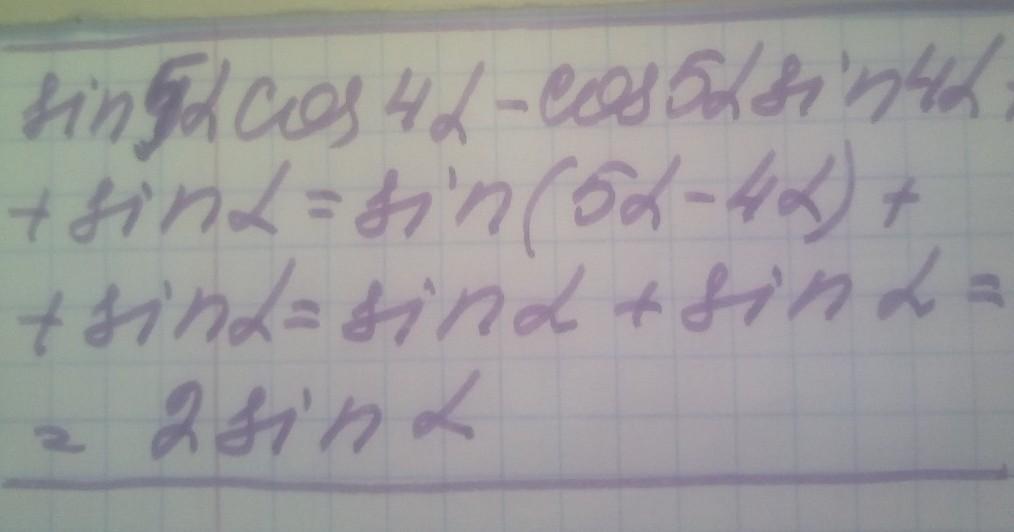 sin5αcos4α-cos5αsin4α+
+sinα=sin(5α-4α)+
+sinα=sinα+sinα=
=2sinα